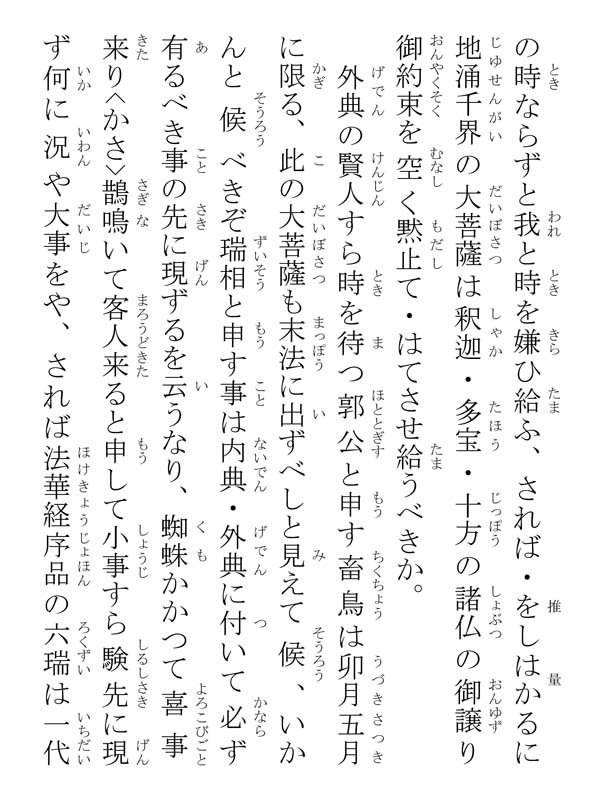 の時ならずと我と時を嫌ひ給ふ、されば・をしはかるに
地涌千界の大菩薩は釈迦・多宝・十方の諸仏の御譲り
御約束を空く黙止て・はてさせ給うべきか。
外典の賢人すら時を待つ郭公と申す畜鳥は卯月五月
に限る、此の大菩薩も末法に出ずべしと見えて候、いか
んと候べきぞ瑞相と申す事は内典・外典に付いて必ず
有るべき事の先に現ずるを云うなり、蜘蛛かかつて喜事
来り<かさ>鵲鳴いて客人来ると申して小事すら験先に現
ず何に況や大事をや、されば法華経序品の六瑞は一代